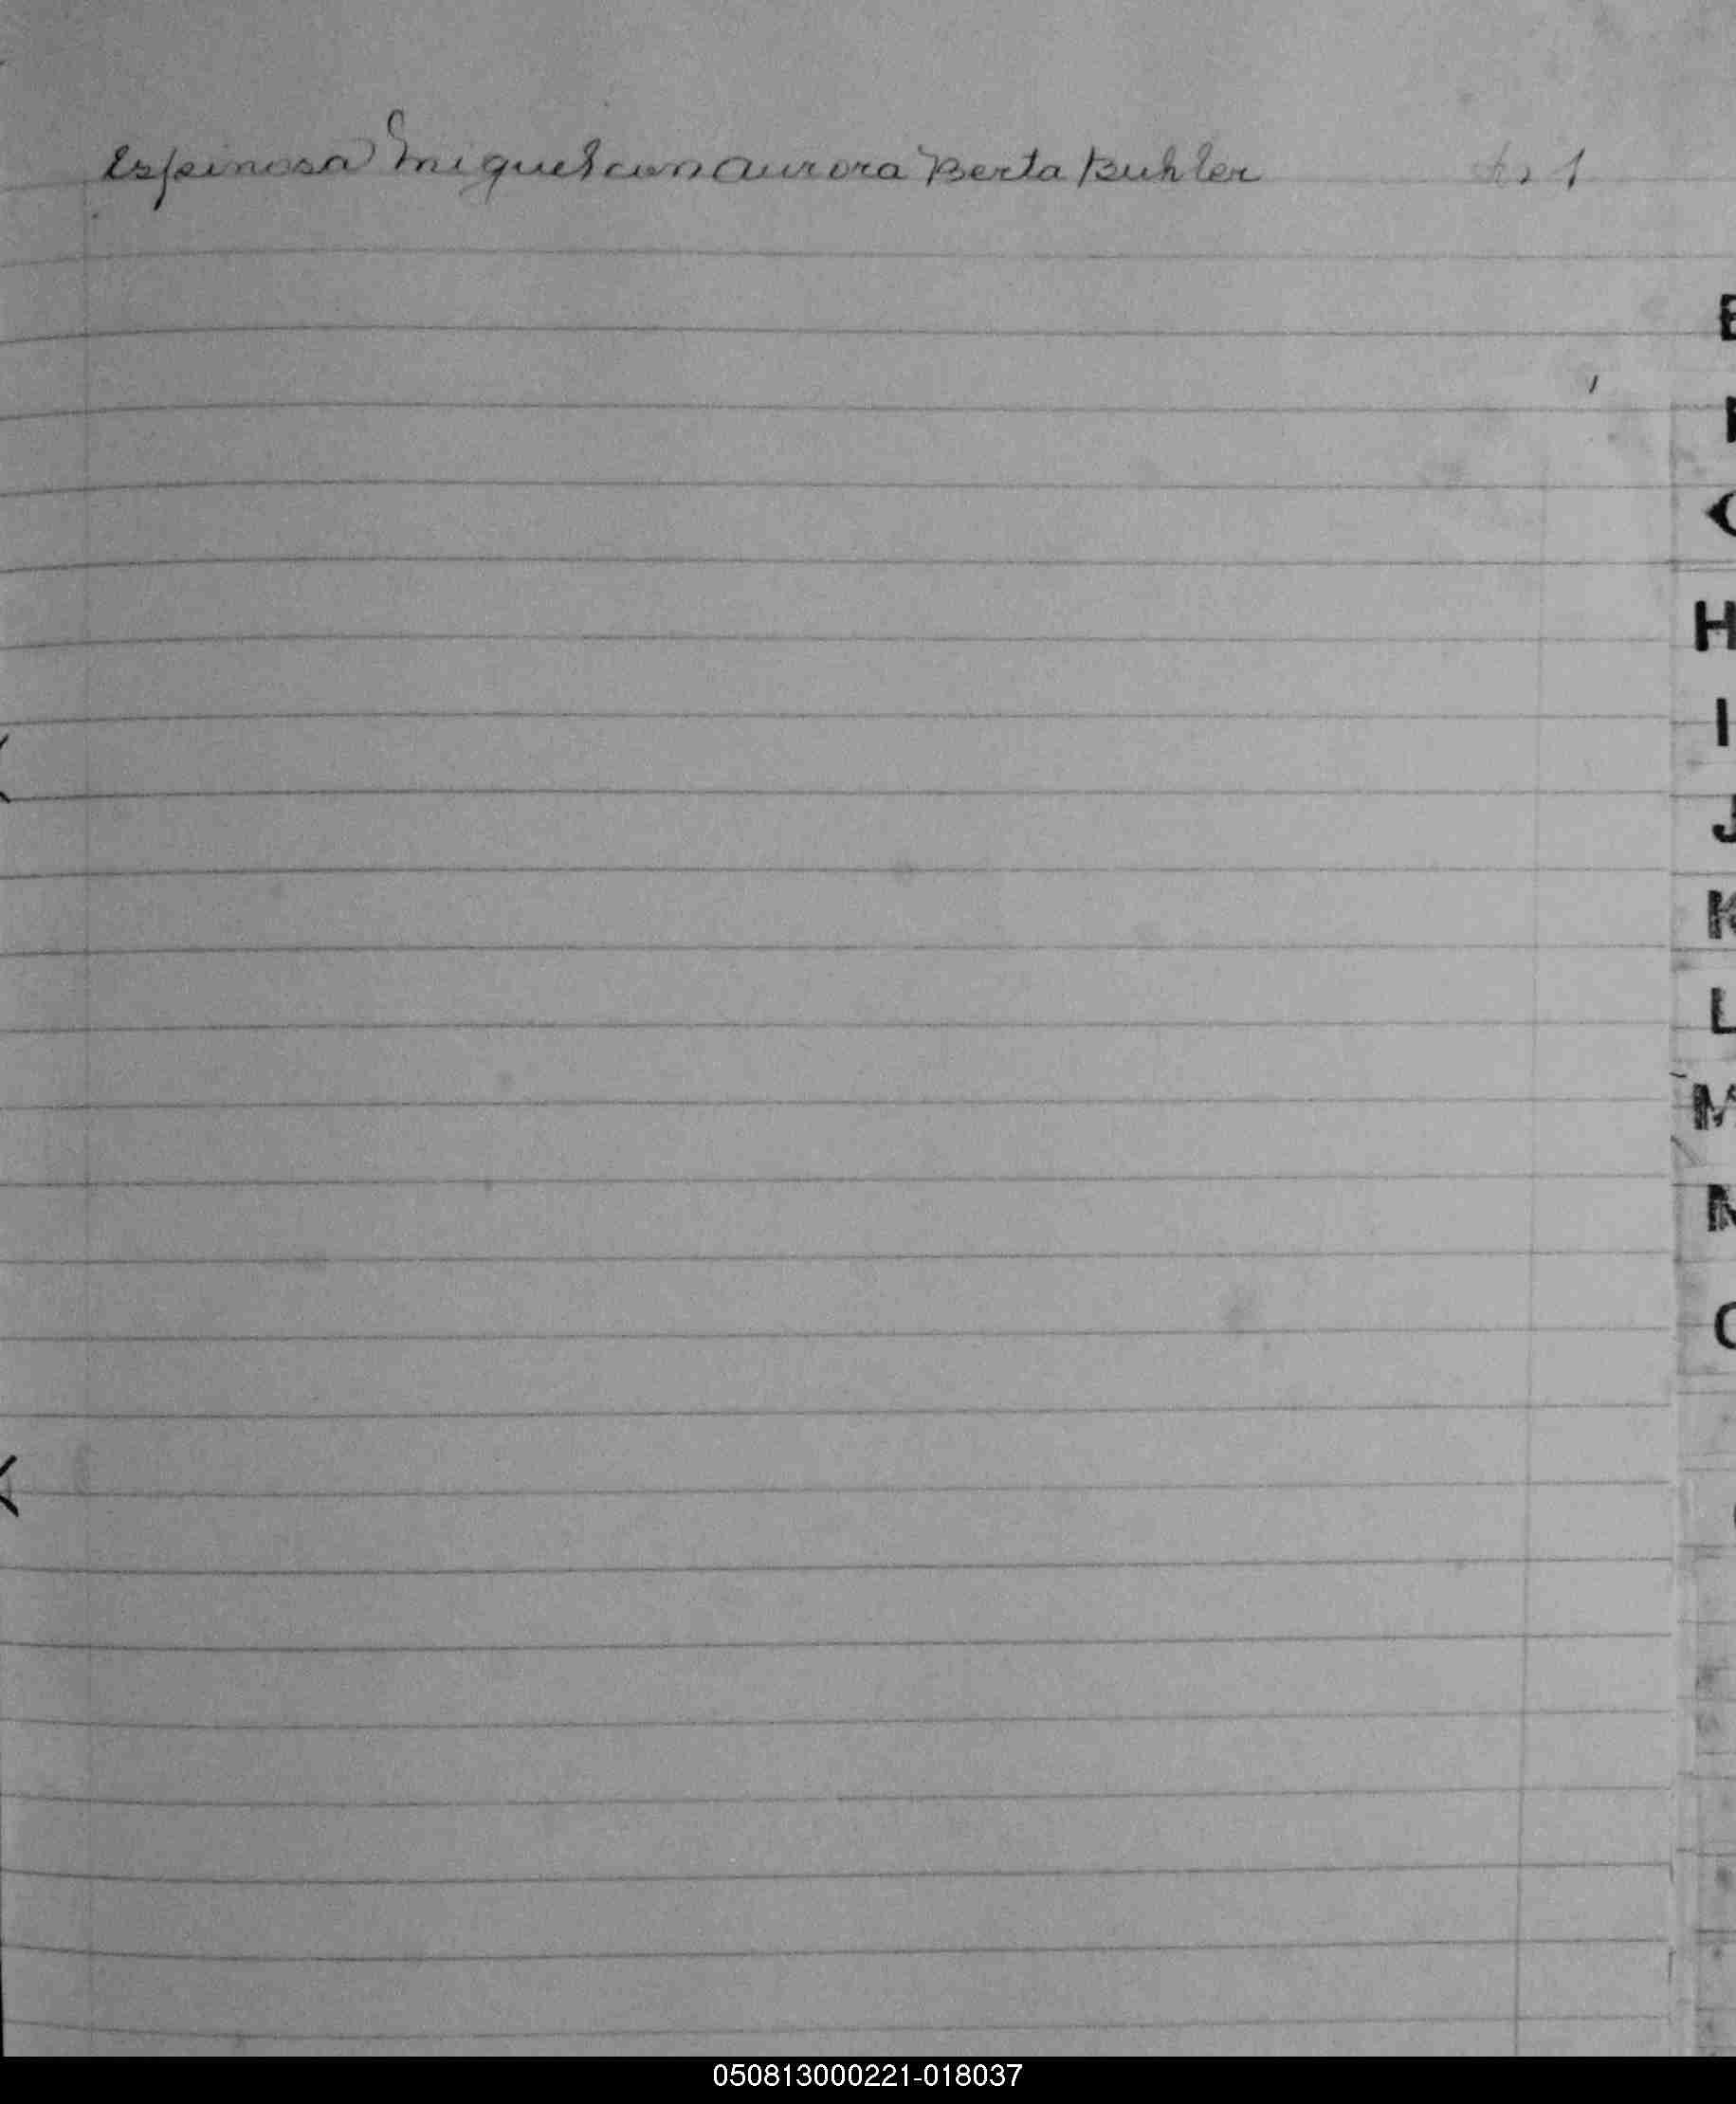 Espinosa Miguel con Aurora Berta Buhler 1
E
H
I
J
K
L
M
N
050813000221-018037